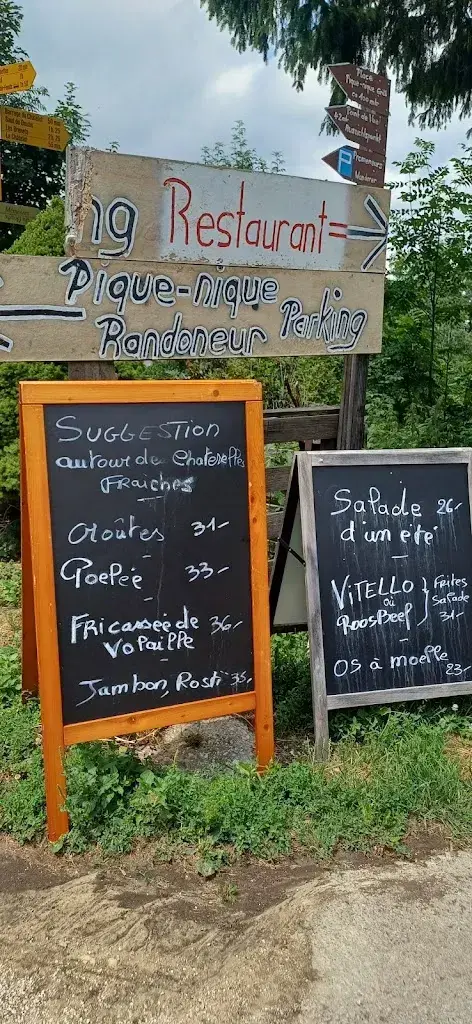 Place
Pique-nique Grill
Promeneurs
Wanderer
ng Restaurant
Pique-nique
Randoneur Parking
SUGGESTION
autour de Chaterelles
FRAICHES
Croûtes 31.-
Poelée 33.-
FRicassée de 36.-
Volaille
Jambon, Rosti 35.-
Salade 26.-
d'un été
VITELLO
ou
ROOSBeef
Frites
Salade
31.-
OS à moelle 23.-